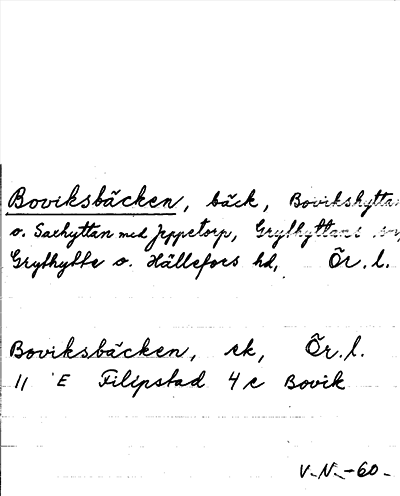 Boviksbäcken, bäck, Bovikshyttan
o. Saxhyttan med Jeppetorp, Grythyttans sn,
Grythytte o. Hällefors hd, Ör. l.
Boviksbäcken, ek, Ör. l.
11 E Filipstad 4 c Bovik
V-N-60-